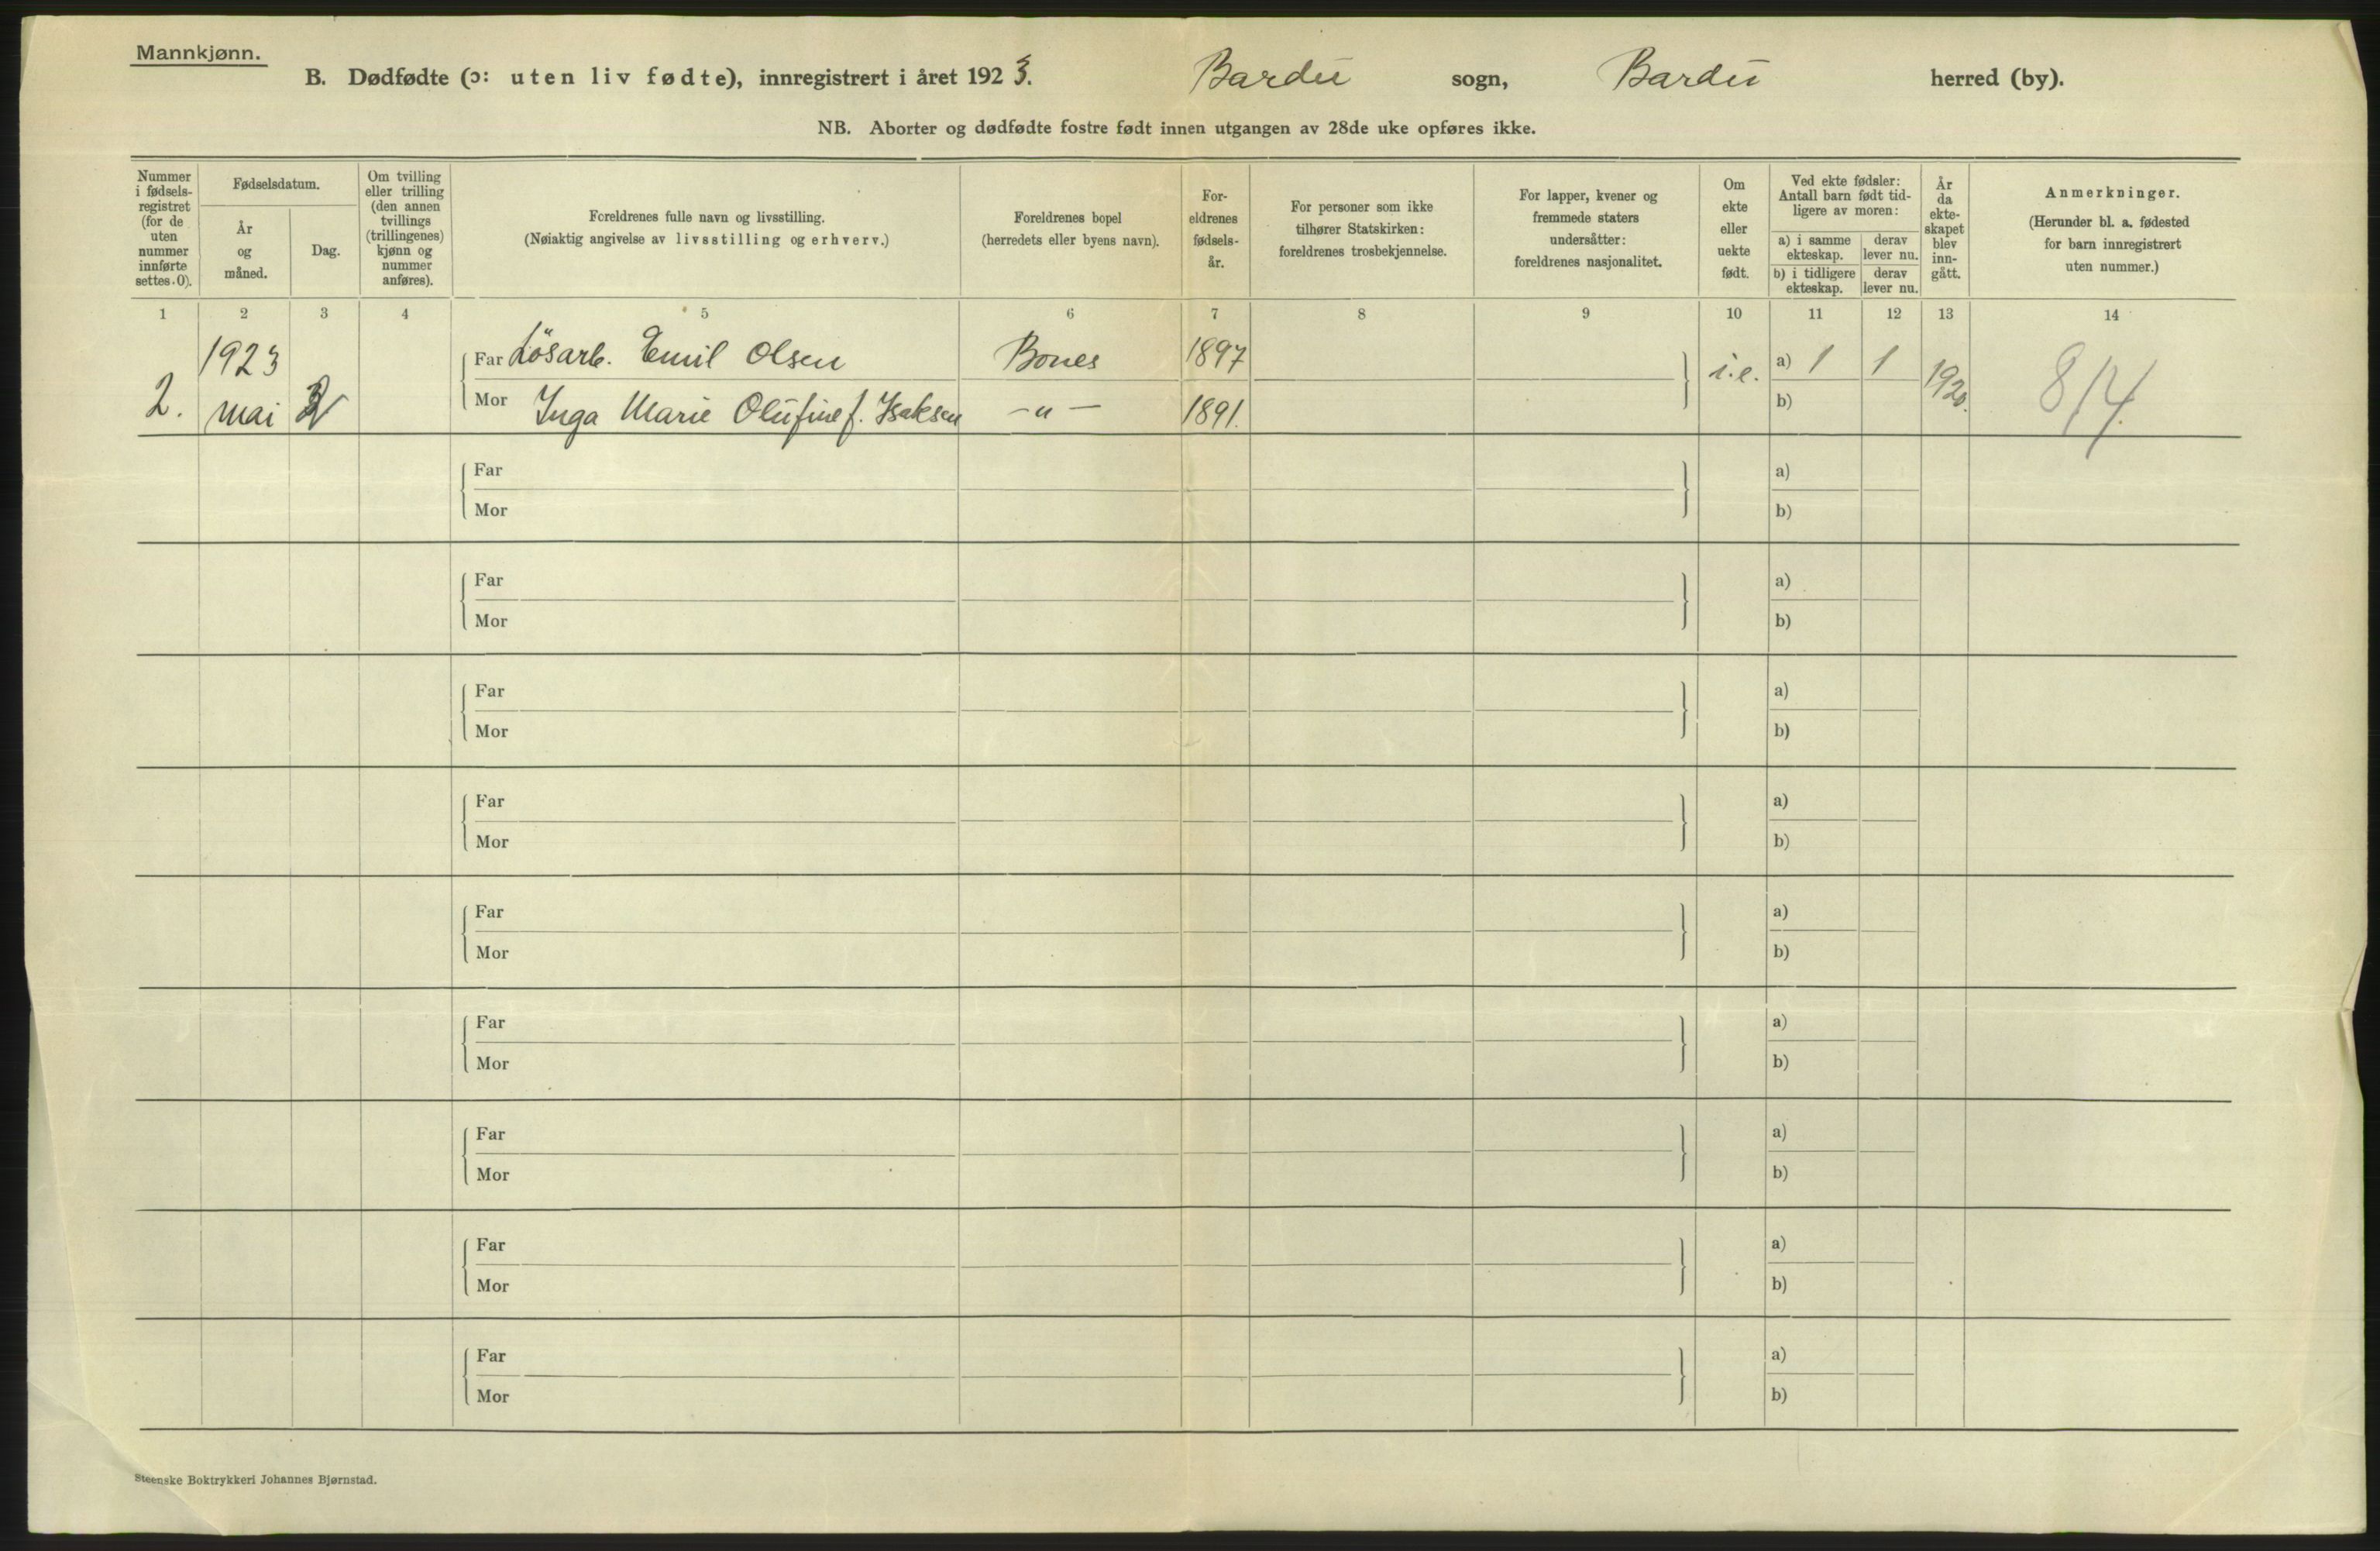 Mannkjønn.
B. Dødfødte (ɔ: uten liv fødte), innregistrert i året 1923. Bardu sogn, Bardu herred (by).
NB. Aborter og dødfødte fostre født innen utgangen av 28de uke opføres ikke.
Nummer i fødsels-registret (for de uten nummer innførte settes 0).
Fødselsdatum.
År og måned.
Dag.
Om tvilling eller trilling (den annen tvillings (trillingenes) kjønn og nummer anføres).
Foreldrenes fulle navn og livsstilling.
(Nøiaktig angivelse av livsstilling og erhverv.)
Foreldrenes bopel
(herredets eller byens navn).
For-eldrenes fødsels-år.
For personer som ikke tilhører Statskirken: foreldrenes trosbekjennelse.
For lapper, kvener og fremmede staters undersåtter: foreldrenes nasjonalitet.
Om ekte eller uekte født.
Ved ekte fødsler: Antall barn født tid-ligere av moren:
a) i samme ekteskap. derav lever nu.
b) i tidligere ekteskap. derav lever nu.
År da ekte-skapet blev inn-gått.
Anmerkninger.
(Herunder bl. a. fødested for barn innregistrert uten nummer.)
1 2 3 4 5 6 7 8 9 10 11 12 13 14
1923 Far Løsarb. Emil Olsen Bones 1897 i.e. a) 1 1 1920. 8/4
2. mai Mor Inga Marie Olufine f. Isaksen -"- 1891. b)
Far a)
Mor b)
Far a)
Mor b)
Far a)
Mor b)
Far a)
Mor b)
Far a)
Mor b)
Far a)
Mor b)
Far a)
Mor b)
Far a)
Mor b)
Far a)
Mor b)
Steenske Boktrykkeri Johannes Bjørnstad.